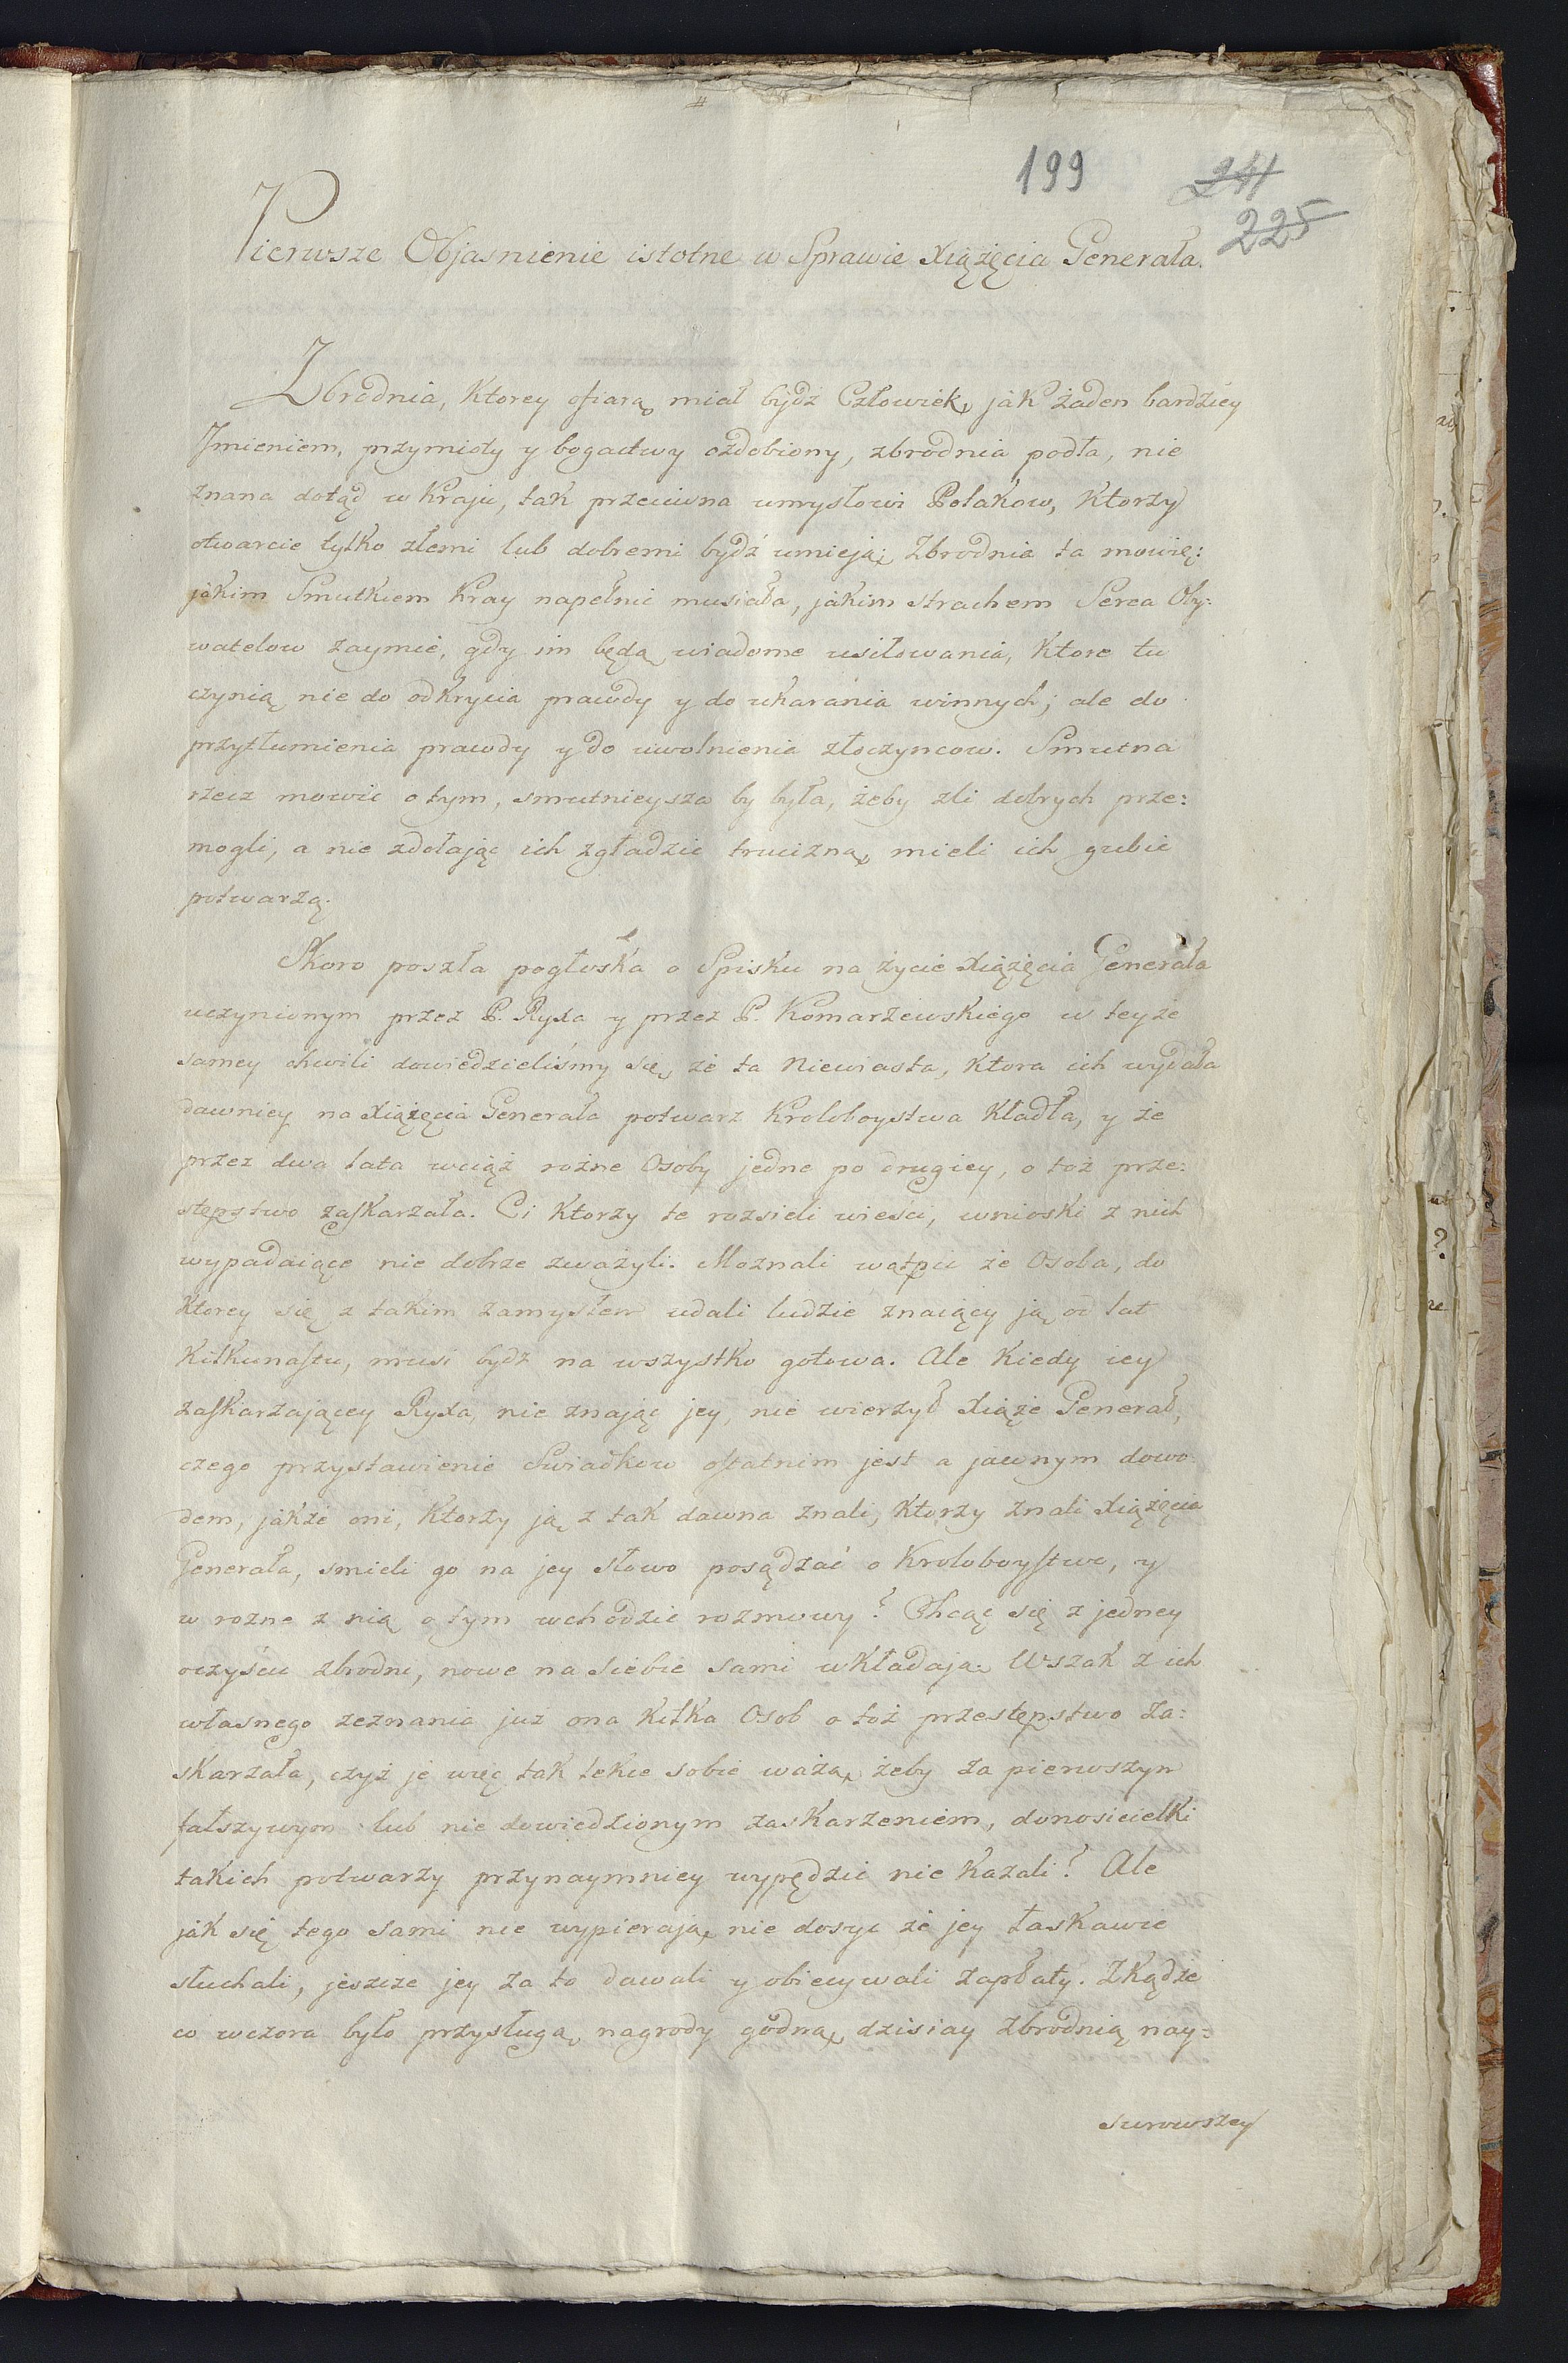 199
241
225
Pierwsze Objasnienie istotne w Sprawie Xiążęcia Generała.
Zbrodnia, Ktorey ofiarą miał bydź Człowiek, jak żaden bardziey
Jmieniem, przymioty y bogactwy ozdobiony, zbrodnia podła, nie
znana dotąd w Kraju, tak przeciwna umysłowi Polakow, Ktorzy
otwarcie tylko złemi lub dobremi bydź umieją; Zbrodnia ta mowię:
jakim Smutkiem Kray napełnic musiała, jakim strachem Serca Oby:
watelow zaymie, gdy im będą wiadome usiłowania, Ktore tu
czynią nie do odkrycia prawdy y do ukarania winnych; ale do
przytłumienia prawdy y do uwolnienia złoczyncow. Smutna
rzecz mowic o tym, smutnieysza by była, żeby zli dobrych prze:
mogli, a nie zdołając ich zgładzic trucizną, mieli ich gubic
potwarzą.
Skoro poszła pogłoska o Spisku na życie Xiążęcia Generała
uczynionym przez P. Ryxa y przez P. Komarzewskiego w teyże
samey chwili dowiedzieliśmy się, że ta Niewiasta, Ktora ich wydała
dawniey na Xiążęcia Generała potwarz Kroloboystwa Kładła, y że
przez dwa lata wciąż rożne Osoby jedne po drugiey, o toż prze:
stępstwo zaskarzała. Ci Ktorzy te rozsieli wieści, wnioski z nich
wypadaiące nie dobrze zważyli. Moznali wątpic że Osoba, do
Ktorey się z takim zamysłem udali ludzie znaiący ją od lat
Kilkunastu, musi bydz na wszystko gotowa. Ale Kiedy iey
zaskarzającey Ryxa, nie znając jey, nie wierzył Xiąże Generał,
czego przystawienie Swiadkow ostatnim jest a jawnym dowo
dem, jakże oni, Ktorzy ją z tak dawna znali, Ktorzy znali Xiążęcia
Generała, smieli go na jey słowo posądzać o Kroloboystwo, y
w rozne z nią o tym wchodzic rozmowy? Chcąc się z jedney
oczyścic zbrodni, nowe na siebie sami wkładają. Wszak z ich
własnego zeznania już ona Kilka Osob o toż przestępstwo za:
skarzała, czyż je więc tak lekce sobie ważą, żeby za pierwszym
fałszywym lub nie dowiedzionym zaskarzeniem, donosicielki
takich potwarzy przynaymniey wypędzic nie Kazali? Ale
jak się tego sami nie wypierają, nie dosyc że jey łaskawie
słuchali, jeszcze jey za to dawali y obiecywali zapłaty. Zkądże
co wczora było przysługą, nagrody godną, dzisiay zbrodnią nay:
surowszey